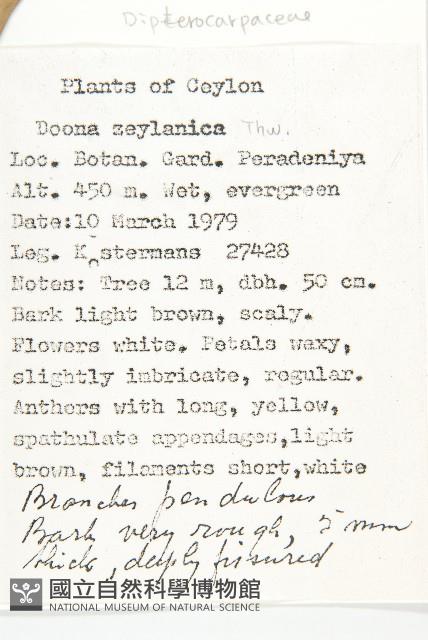 Dipterocarpaceae
Plants of Ceylon
Doona zeylanica Thw.
Loc. Botan. Gard. Peradeniya
Alt. 450 m. Wet, evergreen
Date:10 March 1979
Leg. Kostermans 27428
Notes: Tree 12 m, dbh. 50 cm.
Bark light brown, scaly.
Flowers white. Petals waxy,
slightly imbricate, regular.
Anthers with long, yellow,
spathulate appendages,light
brown, filaments short,white
Branches pendulous
Bark very rough, 5 mm
thick, deeply fissured
國立自然科學博物館
NATIONAL MUSEUM OF NATURAL SCIENCE